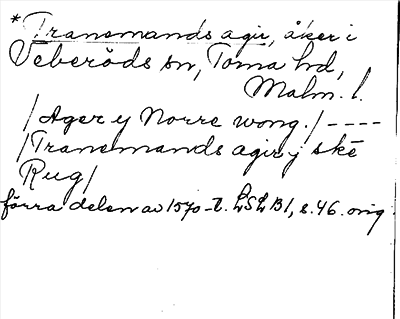 *Tranemands agir, åker i
Veberöds sn, Torna hd,
Malm. l.
/Ager y Norre wong./ ----
/Tranemands agir y skē
Rug/
förra delen av 1570-t. LSLB1, s. 46. orig.